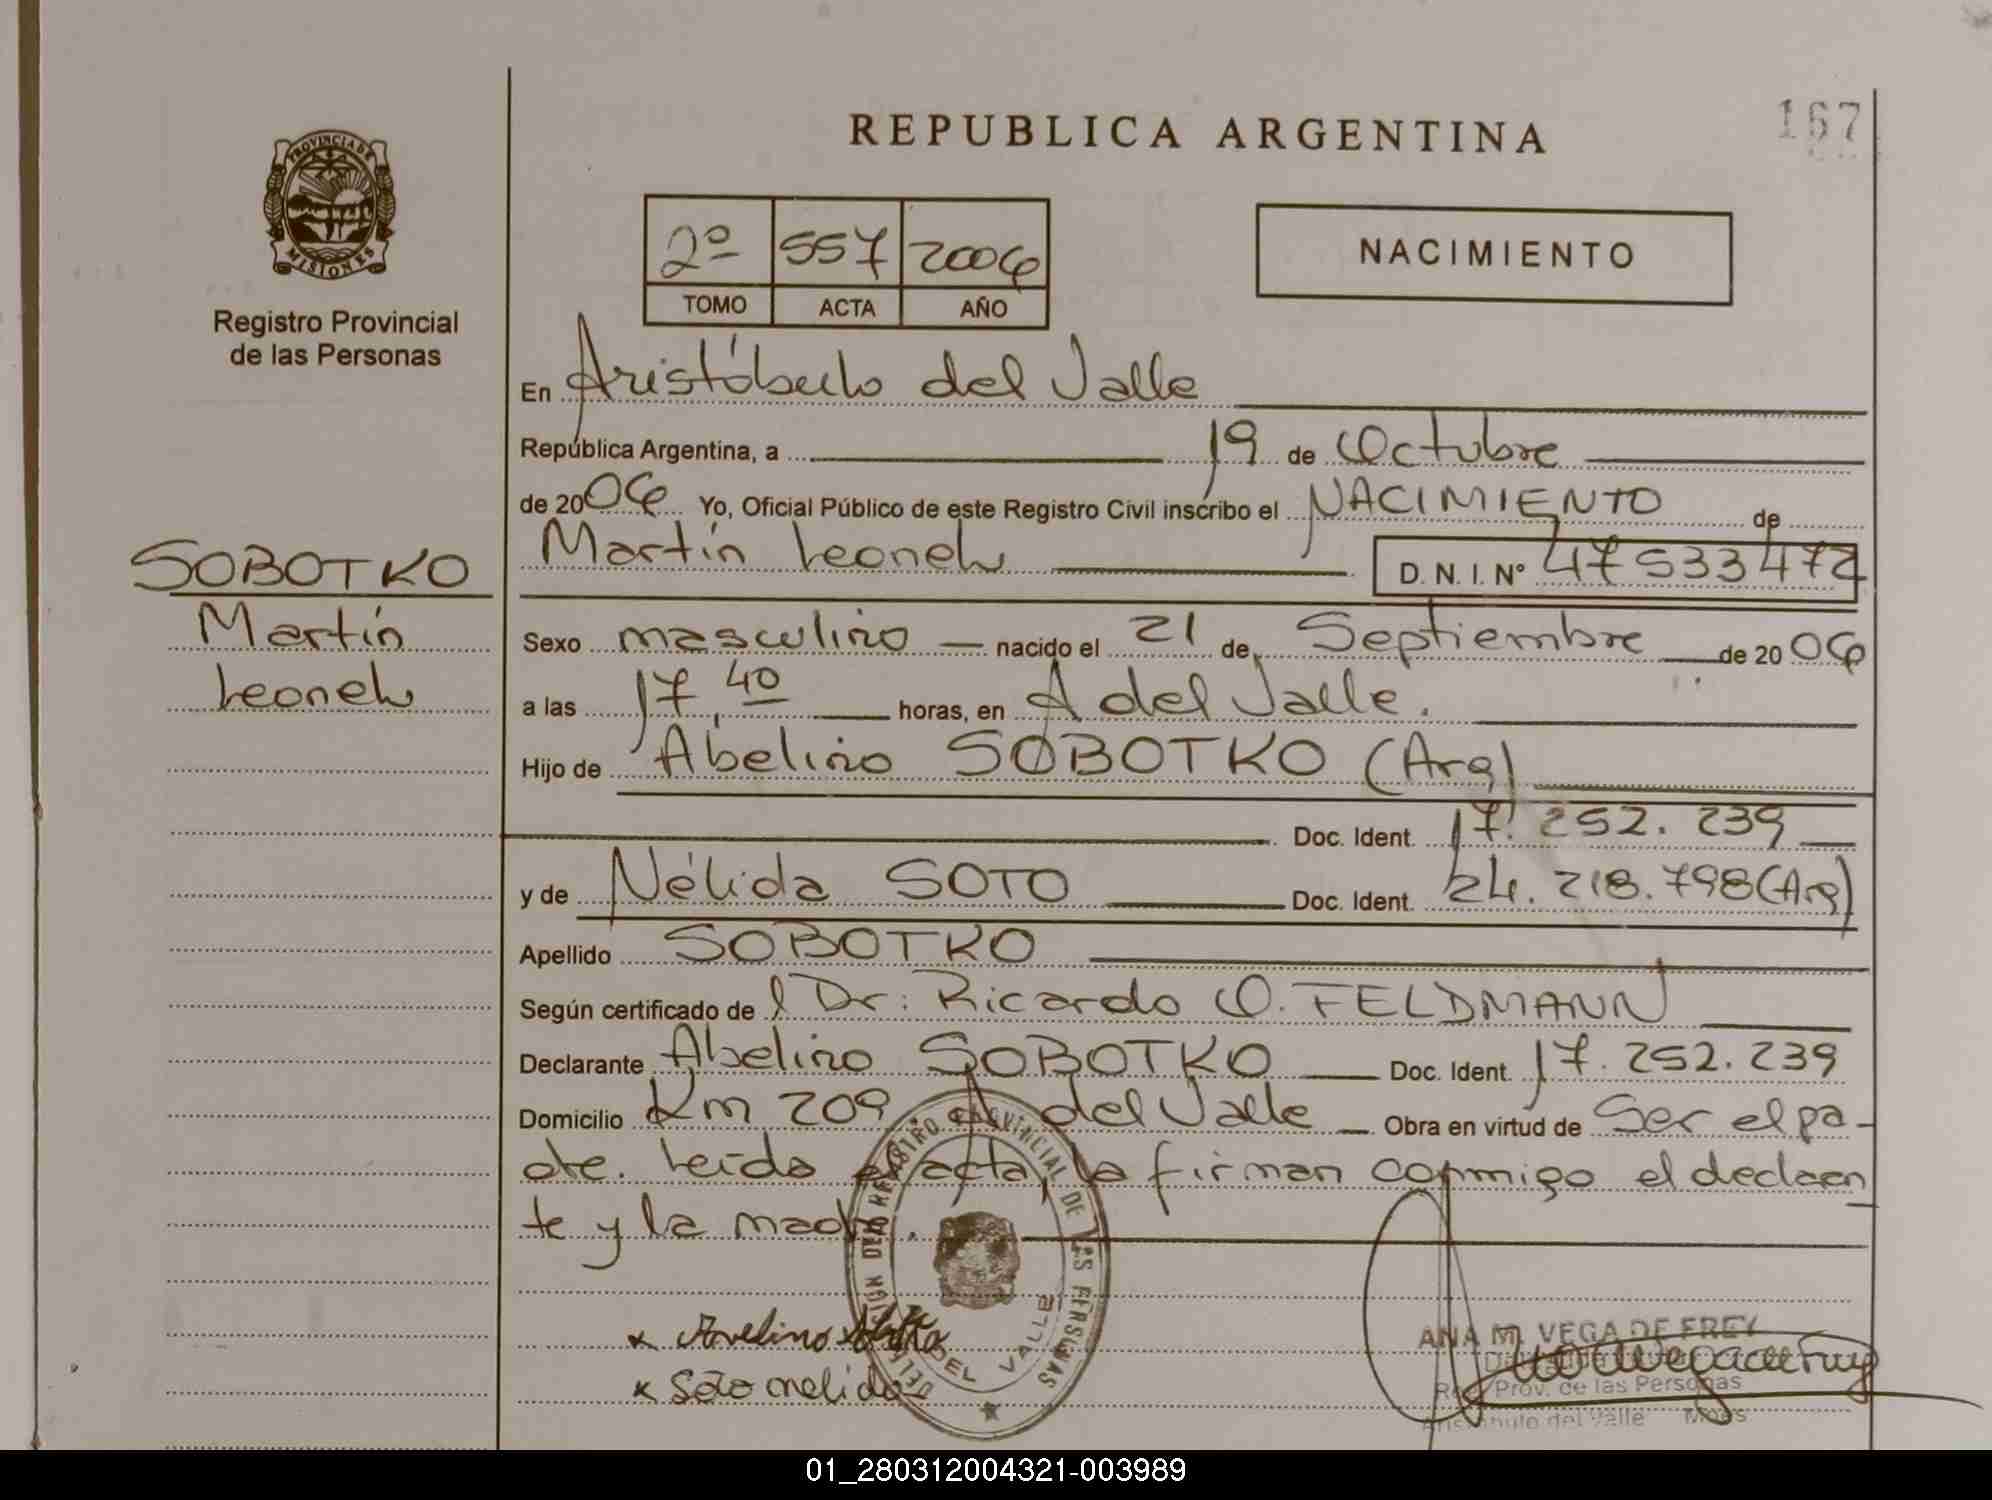 REPUBLICA ARGENTINA
167
PROVINCIA DE
MISIONES
Registro Provincial
de las Personas
2º 557 2006
TOMO ACTA AÑO
NACIMIENTO
En Aristóbulo del Valle
República Argentina, a 19 de Octubre
de 2006 Yo, Oficial Público de este Registro Civil inscribo el NACIMIENTO de
Martín Leonel D. N. I. Nº 47533472
SOBOTKO
Martín
Leonel
Sexo masculino nacido el 21 de Septiembre de 2006
a las 17,40 horas, en A del Valle.
Hijo de Abelino SOBOTKO (Arg)
Doc. Ident. 17.252.239
y de Nélida SOTO Doc. Ident. 24.218.798 (Arg)
Apellido SOBOTKO
Según certificado de l Dr: Ricardo O. FELDMANN
Declarante Abelino SOBOTKO Doc. Ident. 17.252.239
Domicilio Km 209 A del Valle Obra en virtud de Ser el pa-
dre. Leída el acta, la firman conmigo el declaran
te y la madre.
x Avelino
x Soto nelida
DEL VALLE
ANA M. VEGA DE FREY
Reg. Prov. de las Personas
Aristóbulo del Valle Mnes
01_280312004321-003989